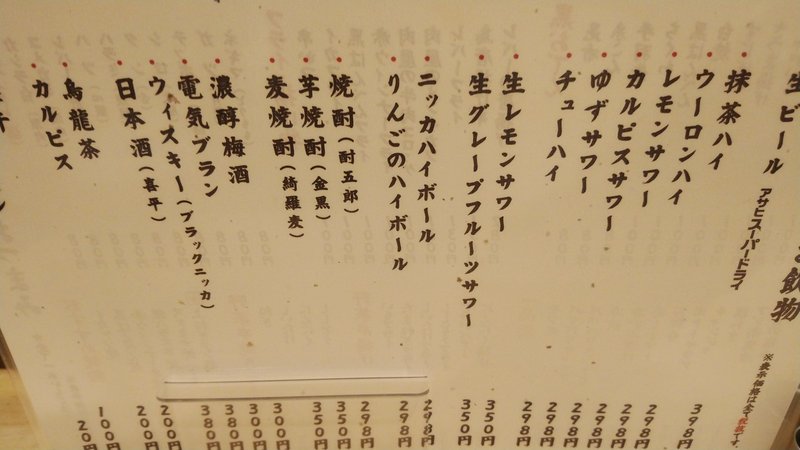 お飲物
※表示価格は全て税抜です。
生ビール アサヒスーパードライ
・抹茶ハイ
・ウーロンハイ
・レモンサワー
・カルピスサワー
・ゆずサワー
・チューハイ
・生レモンサワー
・生グレープフルーツサワー
・ニッカハイボール
・りんごのハイボール
・焼酎(酎五郎)
・芋焼酎(金黒)
・麦焼酎(綺羅麦)
・濃醇梅酒
・電気ブラン
・ウィスキー(ブラックニッカ)
・日本酒(喜平)
・烏龍茶
・カルピス
398円
298円
298円
298円
298円
298円
298円
350円
350円
298円
298円
298円
350円
350円
300円
300円
380円
380円
200円
200円
100円
20円